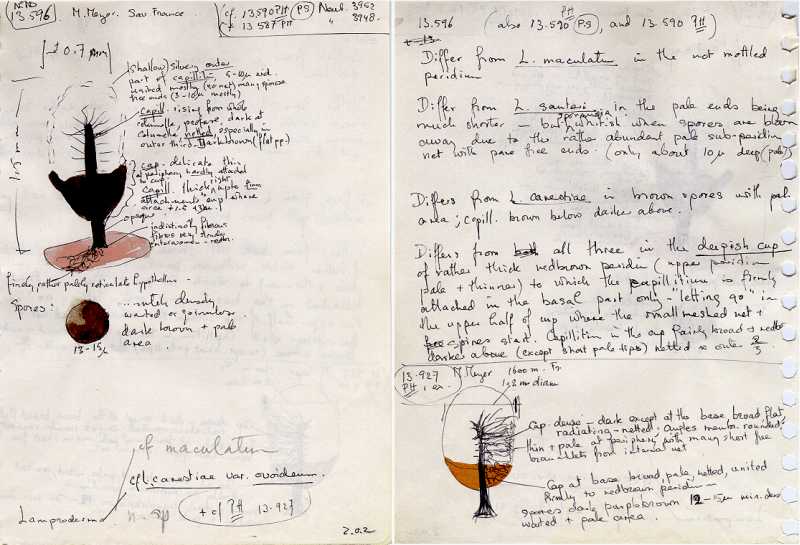 13.596
M. Meyer. Sav France
cf. 13590 PH PS Neub. 3952
cf 13587 PH " 3948.
0.7 mm
(shallow) silvery outer
part of capill.
free ends (3-10μ mostly)
capill. rising from whole
columella, profuse, dark at
columella, netted, especially in
outer third.
cap. delicate thin
at periphery hardly attached
to cup.
capill. thick right
attachments
opaque
indistinctly fibrous
finely, rather palely reticulate hypothallus -
Spores:
... minutely densely
warted or granulose.
dark brown + pale
area.
13-15μ
cf maculatum
cf L. carestiae var. ovoideum.
Lamproderma
+ cf PH 13.927
2.0.2
13.596 (also 13.590 PS, and 13.590 PH)
Differ from L. maculatum in the not mottled
peridium
Differ from L. sauteri in the pale ends being
much shorter - but whitish when spores are blown
away due to the rather abundant pale sub-peridial
net with pare free ends. (only about 10μ deep (pale))
Differs from L. carestiae in brown spores with pale
area; capill. brown below darker above.
Differs from all three in the deepish cup
of rather thick redbrown peridium (upper peridium
pale + thinner) to which the capillitium is firmly
attached in the basal part only - "letting go" in
the upper half of cup where the small meshed net +
spines start. Capillitium in the cup fairly broad + redbr
darker above (except short pale tips) netted in outer 2/3
13.927 M. Meyer 1600 m. Fr
PH
Cap. dense + dark except at the base broad flat,
radiating - netted: angles membr. rounded;
thin + pale at periphery with many short free
branchlets from internal net
Cap at base broad, pale, netted, united
firmly to redbrown peridium -
spores dark purplebrown 12-15μ min. dens
warted + pale area.